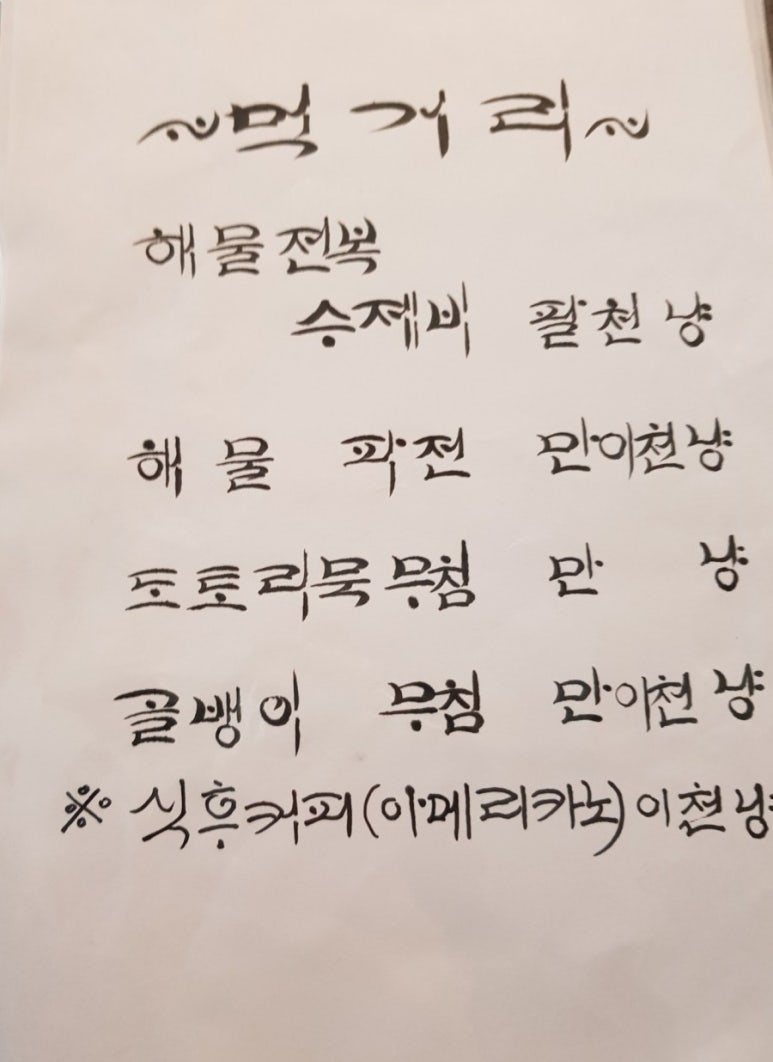 ~먹거리~
해물전복
수제비 팔천냥
해물 파전 만이천냥
도토리묵무침 만 냥
골뱅이 무침 만이천냥
※ 식후커피(아메리카노)이천냥